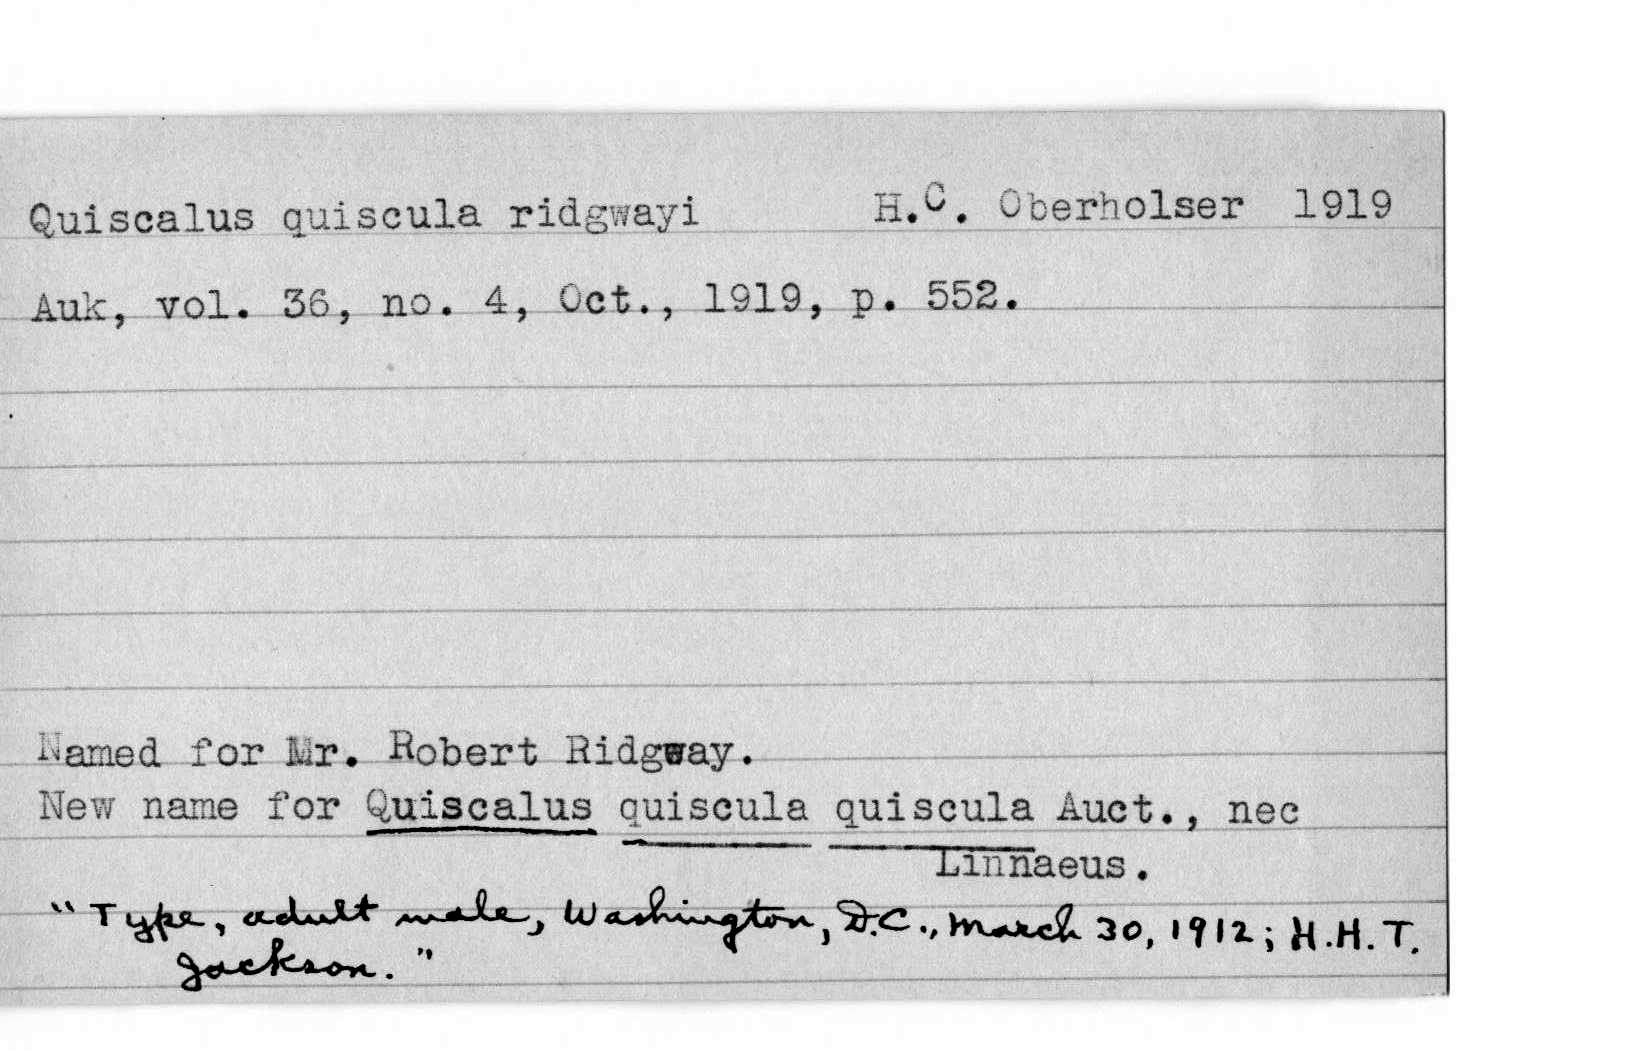 Quiscalus quiscula ridgwayi H.C. Oberholser 1919
Auk, vol. 36, no. 4, Oct., 1919, p. 552.
Named for Mr. Robert Ridgway.
New name for Quiscalus quiscula quiscula Auct., nec
Linnaeus.
"Type, adult male, Washington, D.C., March 30, 1912; H.H.T.
Jackson."